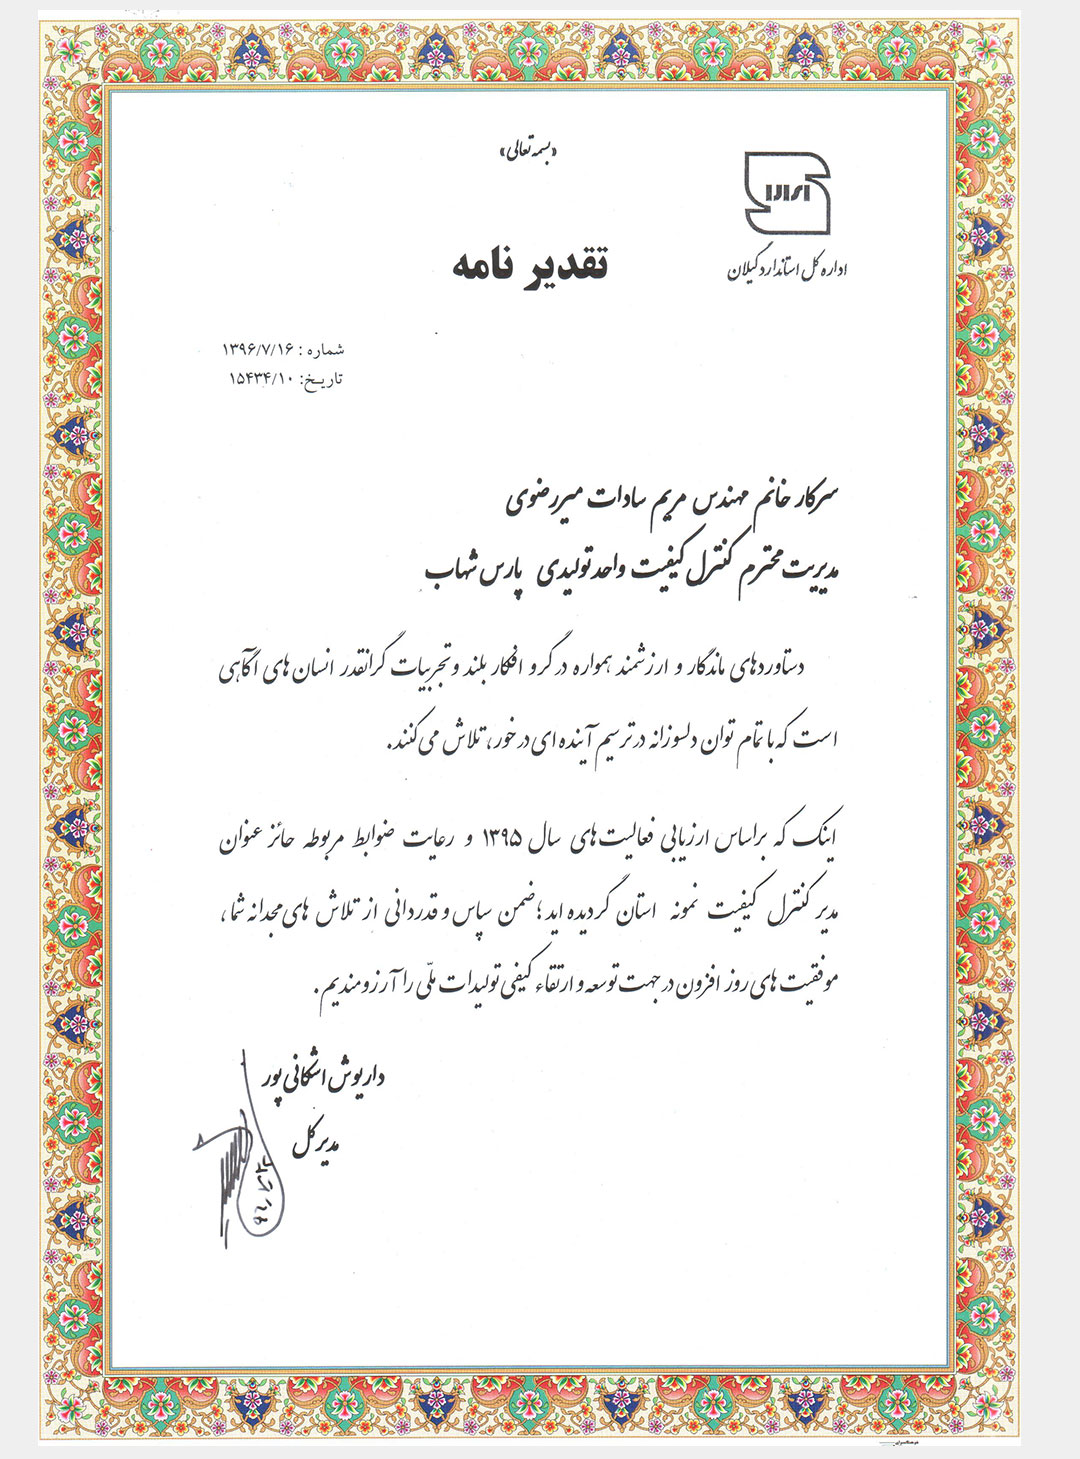 «بسمه تعالی»
اداره کل استاندارد گیلان
تقدیر نامه
شماره : ۱۳۹۶/۷/۱۶
تاریخ: ۱۵۴۳۴/۱۰
سرکار خانم مهندس مریم سادات میررضوی
مدیریت محترم کنترل کیفیت واحد تولیدی پارس شهاب
دستاوردهای ماندگار و ارزشمند همواره در گرو افکار بلند و تجربیات گرانقدر انسان های آگاهی
است که با تمام توان دلسوزانه در ترسیم آینده ای در خور، تلاش می کنند.
اینک که براساس ارزیابی فعالیت های سال ۱۳۹۵ و رعایت ضوابط مربوطه حائز عنوان
مدیر کنترل کیفیت نمونه استان گردیده اید؛ ضمن سپاس و قدردانی از تلاش های مجدانه شما،
موفقیت های روز افزون در جهت توسعه و ارتقاء کیفی تولیدات ملّی را آرزومندیم.
داریوش اشکانی پور
مدیر کل